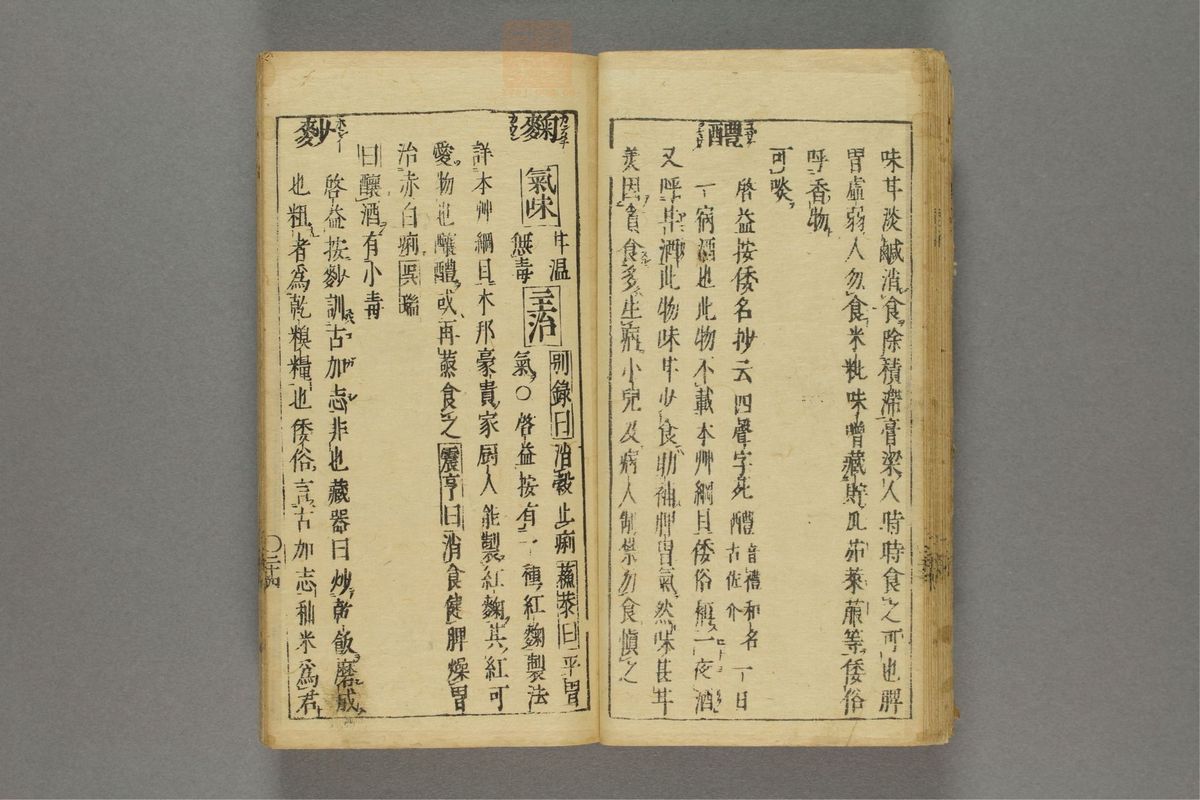 味甘淡鹹消食除積滯膏梁人時時食之可也脾
胃虛弱人勿食米粃味噌藏貯瓜茄萊菔等倭俗
呼香物
可啖
醴
啓益按倭名抄云四聲字苑醴音禮和名古佐介一日
一宿酒也此物不載本艸綱目倭俗稱一夜酒
又呼甘酒此物味甘少食助神脾胃氣然味甚甘
美因貪食多生病小兒及病人制禁勿食愼之
麴
氣味甘温無毒主治別錄曰消穀止痢蘓恭曰平胃
氣○啓益按有一種紅麴製法
詳本艸綱目本邦豪貴家厨人能製紅麴其紅可
愛物也釀醴或再蒸食之震亨曰消食健脾燥胃
治赤白痢吳瑞
曰釀酒有小毒
麨
啓益按麨訓古加志非也藏器曰炒乾飯磨成
也粗者爲乾糗糧也倭俗言古加志秈米爲君
〇三十四